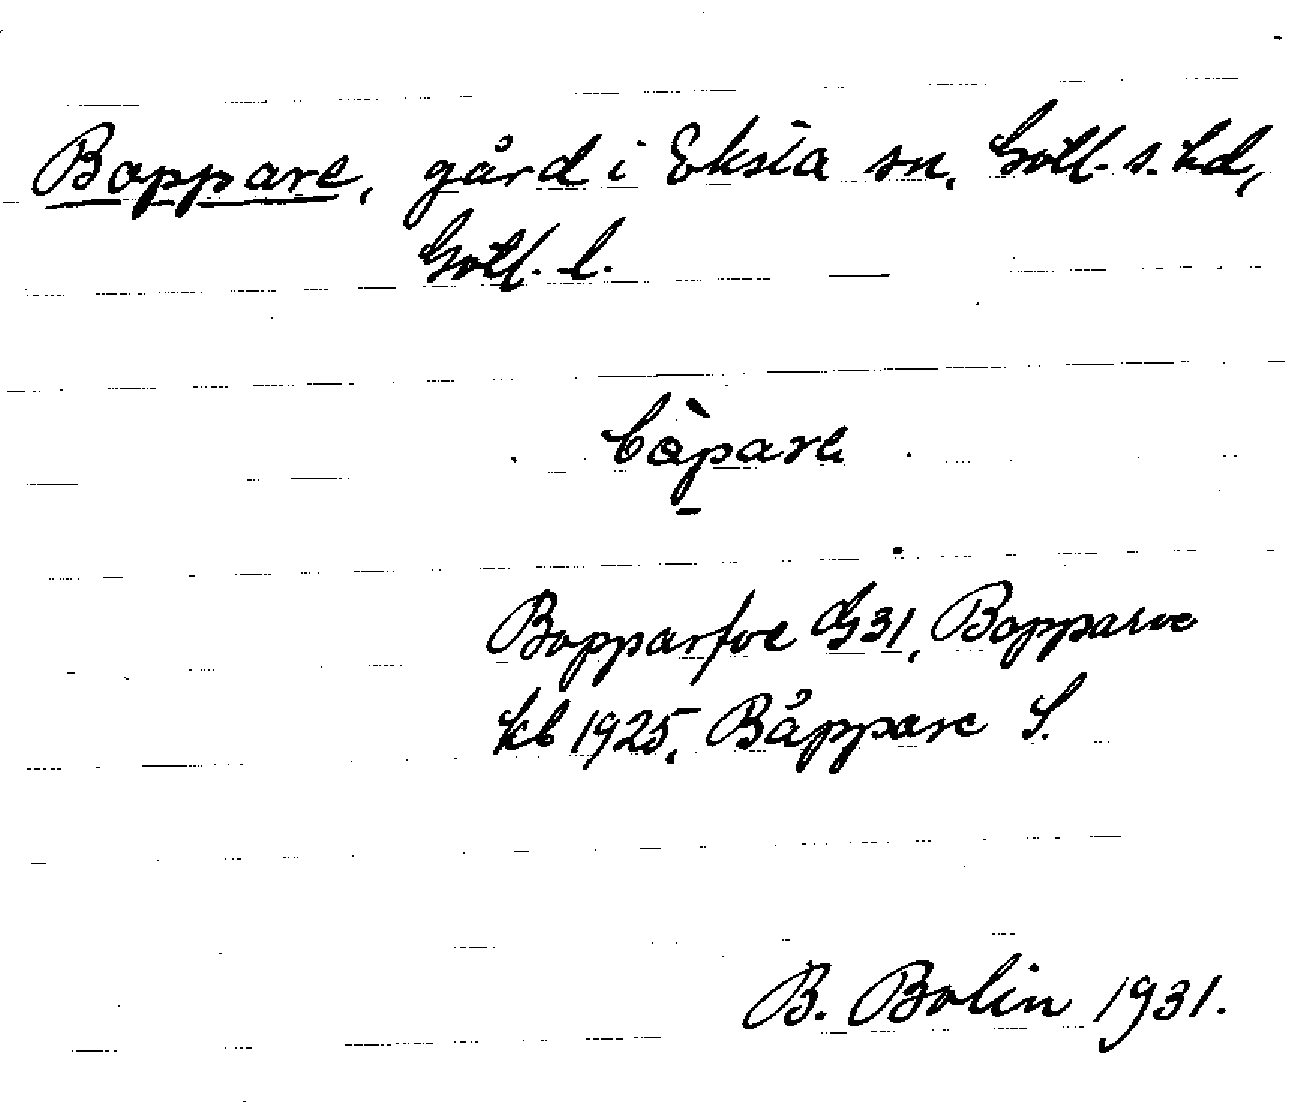 Boppare, gård i Eksta sn, Gotl. s. hd,
Gotl. l.
bòp̱arε
Bopparfve G31, Bopparve
kb 1925, Båppare S.
B. Bolin 1931.